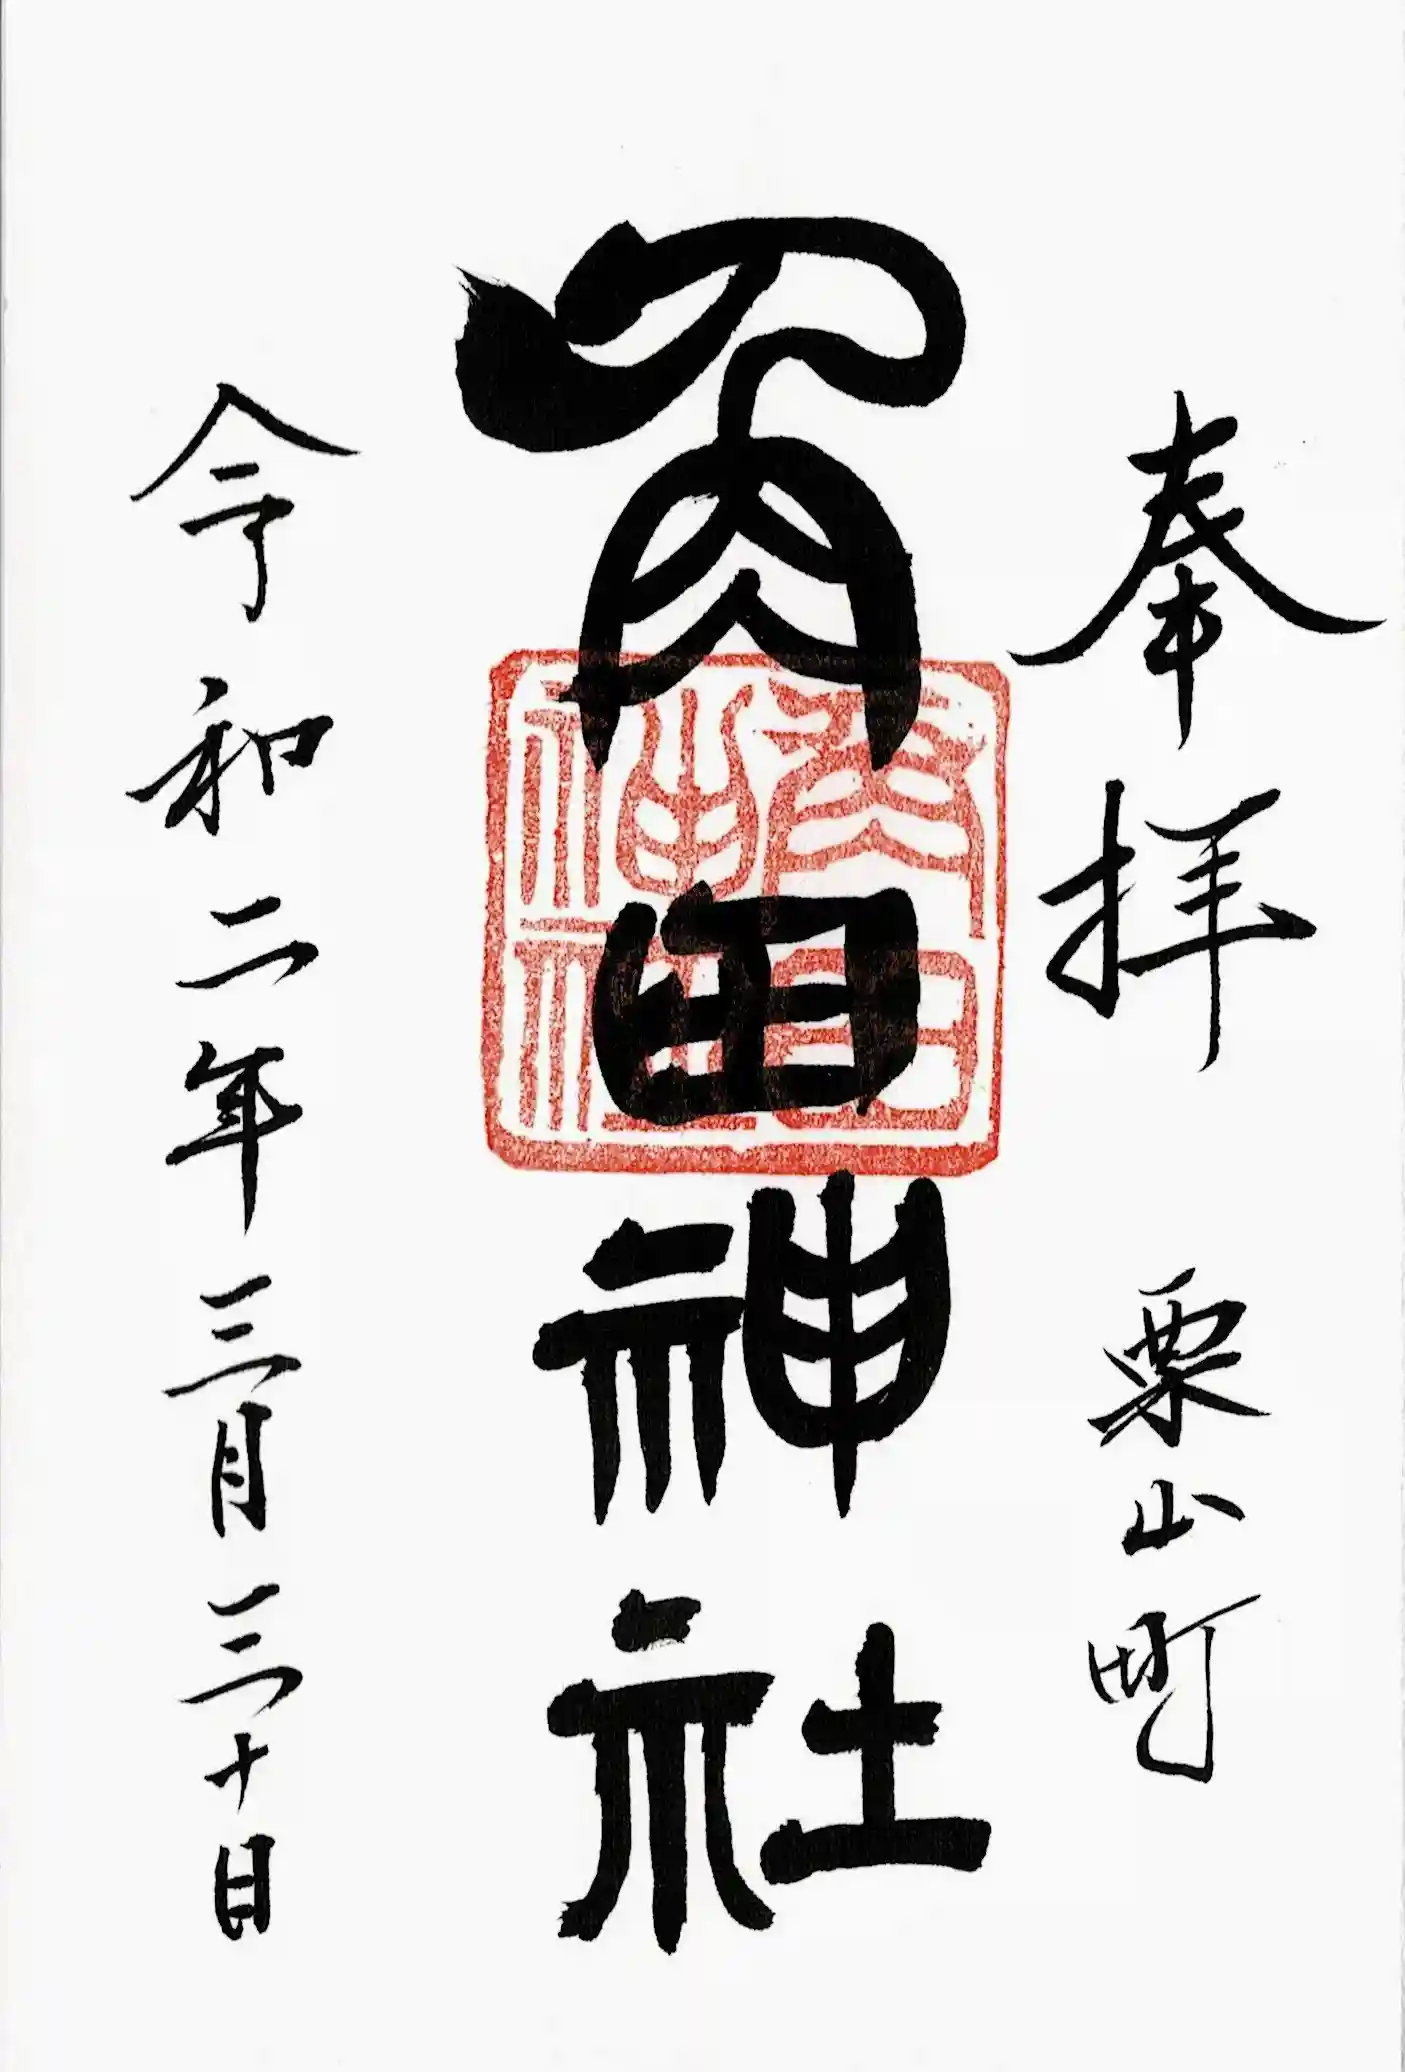 奉拝 栗山町
角田神社
角田
神社
令和二年三月三十日